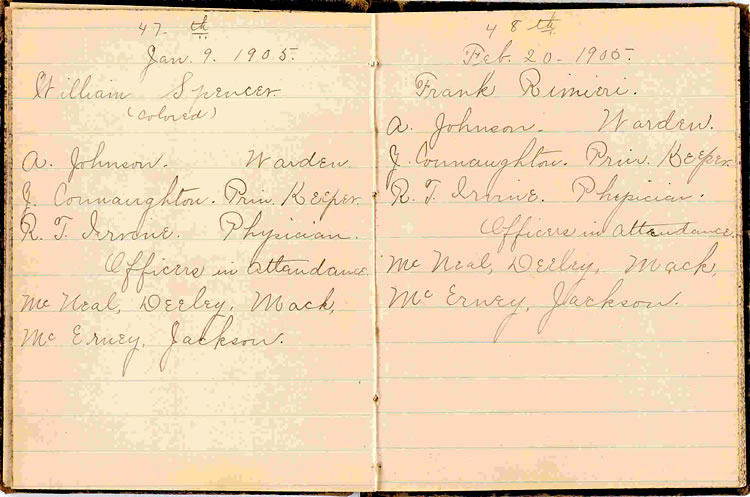 47.th
Jan. 9. 1905.
William Spencer
(Colored)
A. Johnson. Warden.
J. Connaughton. Prin. Keeper.
R. T. Irvine. Physician.
Officers in attendance
Mc Neal, Deeley, Mack,
Mc Erney, Jackson.
48th
Feb. 20 - 1905.
Frank Rimieri.
A. Johnson. Warden.
J. Connaughton. Prin. Keeper.
R. T. Irvine. Physician.
Officers in attendance.
Mc Neal, Deeley, Mack,
Mc Erney, Jackson.